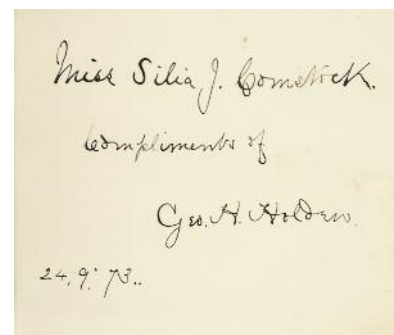 Miss Silia J. Comstock.
Compliments of
Geo. H. Holden.
24. 9. 73..